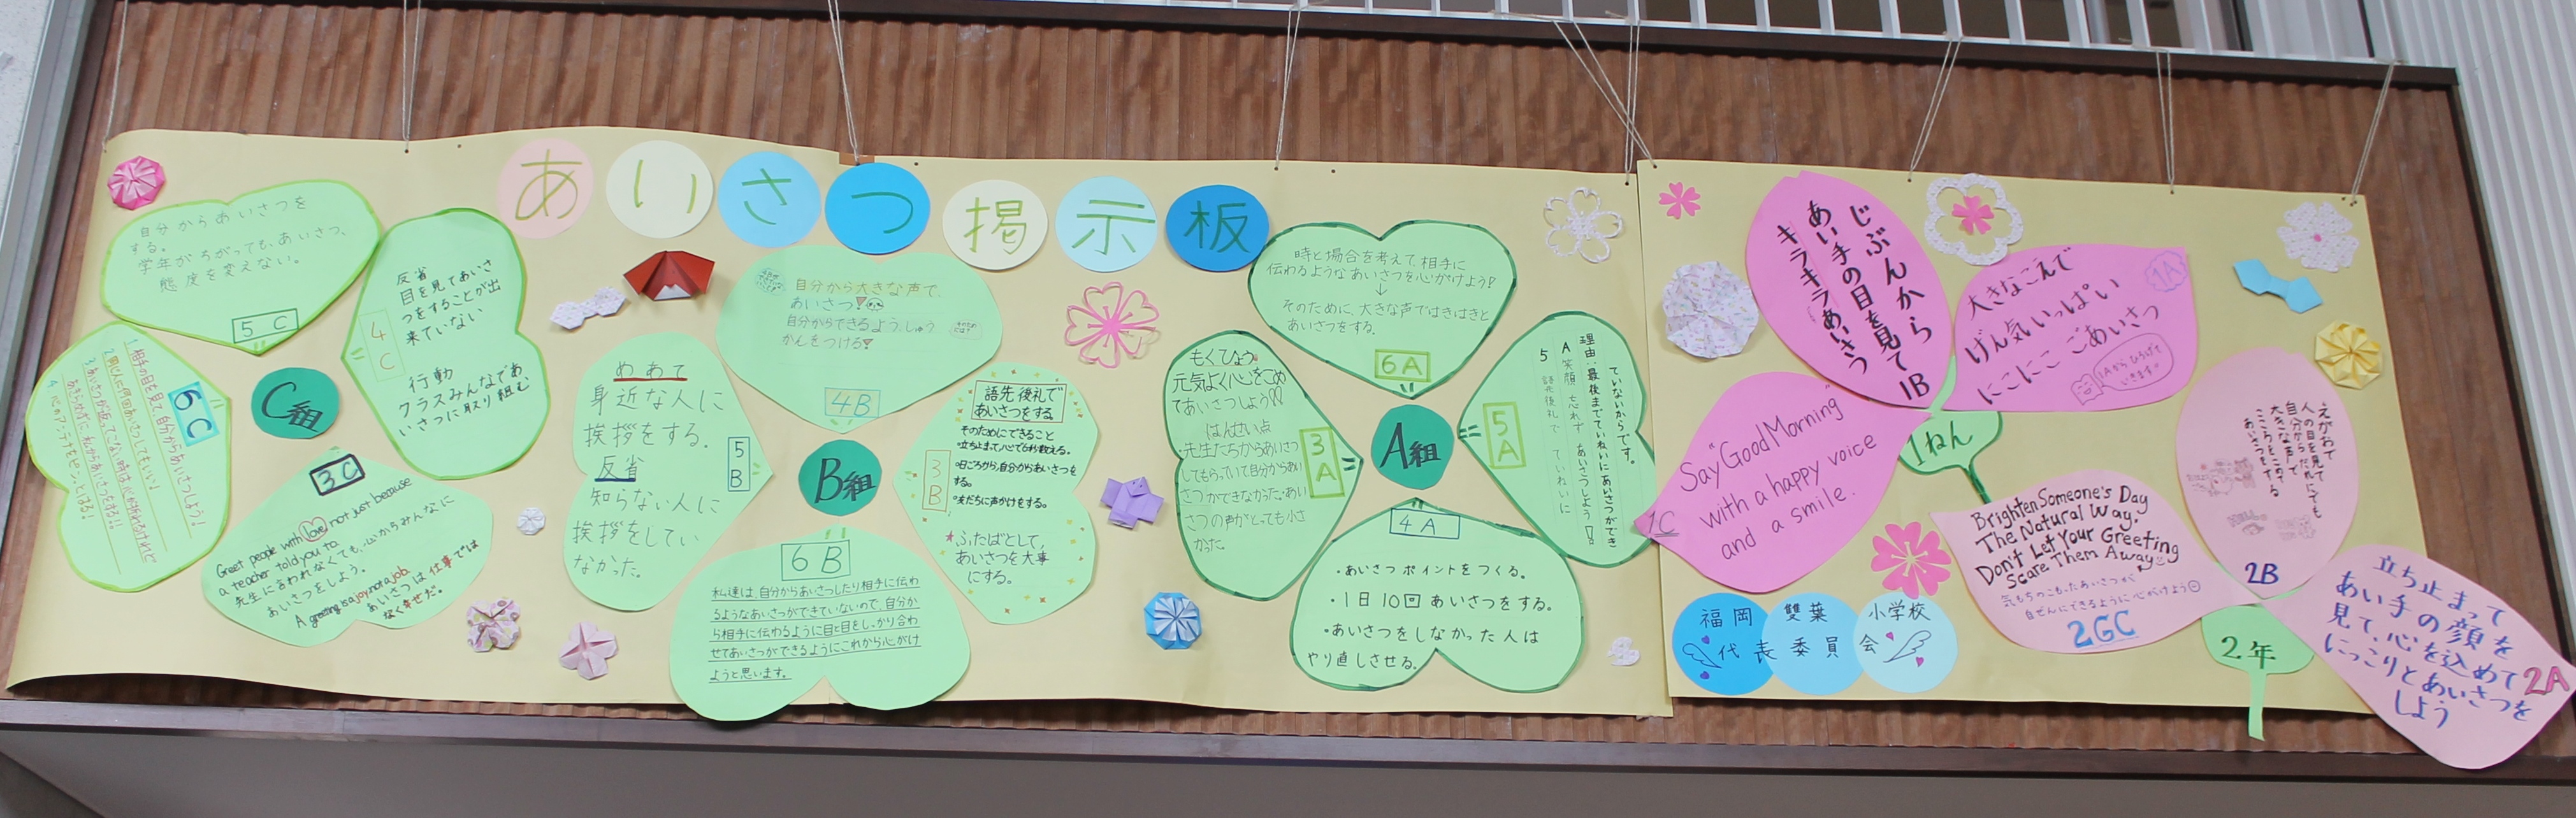 あいさつ掲示板
自分からあいさつを
する。
学年がちがっても、あいさつ、
態度を変えない。
5 C
反省
目を見てあいさ
つをすることが出
来ていない
行動
クラスみんなであ
いさつに取り組む
4C
6C
1.相手の目を見て自分からあいさつしよう!
C組
3C
Greet people with love, not just because
a teacher told you to
先生に言われなくても、心からみんなに
あいさつをしよう。
A greeting is a joy, not a job.
あいさつは仕事では
なく幸せだ。
自分から大きな声で、
あいさつ!
自分からできるよう、しゅう
かんをつける!
4B
めあて
身近な人に
挨拶をする。
反省
知らない人に
挨拶をしてい
なかった。
5B
B組
語先後礼で
あいさつをする
そのためにできること
・立ち止まって心で6秒数える。
・日ごろから、自分からあいさつを
する。
・友だちに声かけをする。
★ふたばとして、
あいさつを大事
にする。
3B
6B
私達は、自分からあいさつしたり相手に伝わ
るようなあいさつができていないので、自分か
ら相手に伝わるように目と目をしっかり合わ
せてあいさつができるようにこれから心がけ
ようと思います。
時と場合を考えて、相手に
伝わるようなあいさつを心がけよう!
↓
そのために、大きな声ではきはきと
あいさつをする。
6A
もくひょう
元気よく心をこめ
てあいさつしよう!!
はんせい点
先生たちからあいさつ
してもらっていて自分からあい
さつができなかった。あい
さつの声がとっても小さ
かった。
3A
A組
5A
5A 笑顔忘れず あいさつしよう!
語先後礼で ていねいに
理由:最後までていねいにあいさつができ
ていないからです。
4A
・あいさつポイントをつくる。
・1日10回あいさつをする。
・あいさつをしなかった人は
やり直しさせる。
じぶんから
あい手の目を見て
キラキラあいさつ
1B
大きなこえで
げん気いっぱい
にこにこ ごあいさつ
1A
1Aからひろげて
いきます!
"Say Good Morning"
with a happy voice
and a smile.
1C
1ねん
Brighten Someone's Day
The Natural Way.
Don't Let Your Greeting
Scare Them Away
気もちのこもったあいさつが
自ぜんにできるように心がけよう
2GC
えがおで
人の目を見て
自分からだれにでも
大きな声で
こころをこめて
あいさつをする
2B
立ち止まって
あい手の顔を
見て、心を込めて
にっこりとあいさつを
しよう
2A
2年
福岡雙葉小学校
代表委員会